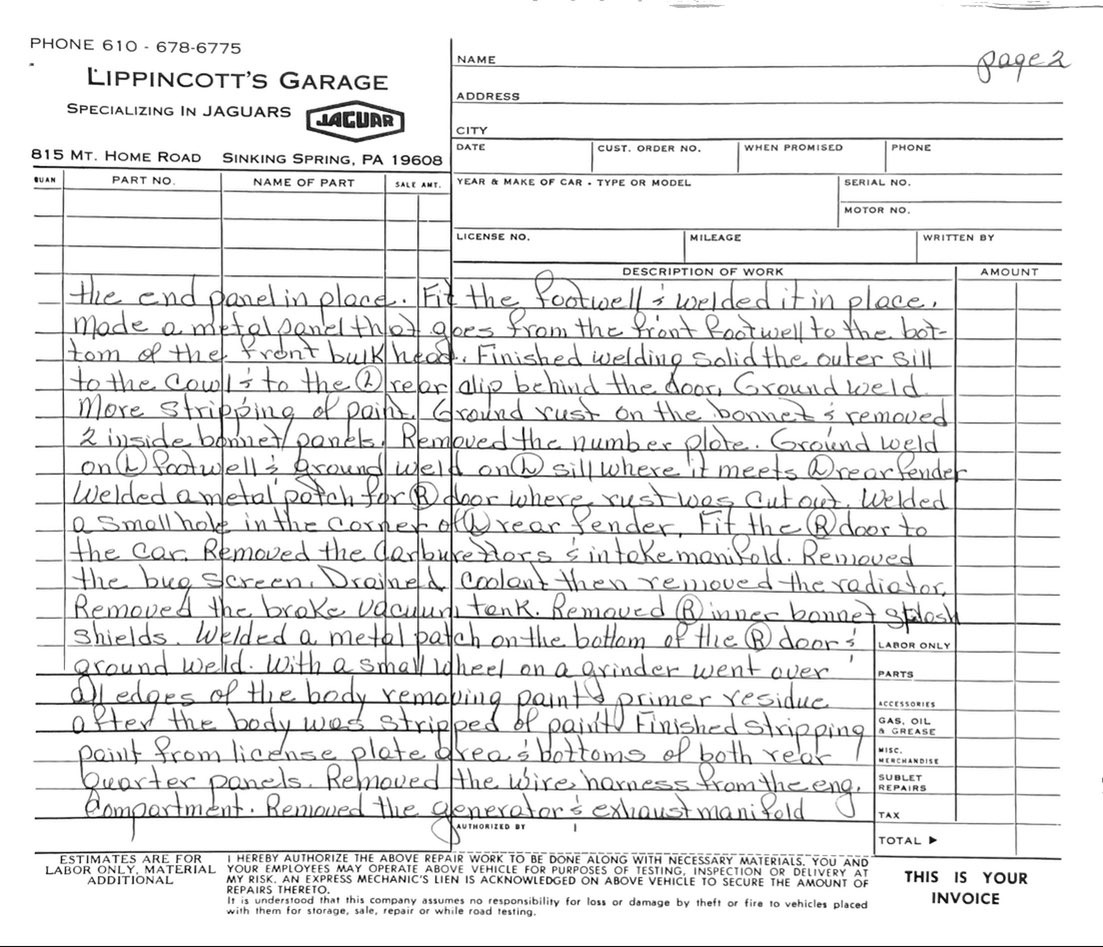 PHONE 610 - 678-6775
LIPPINCOTT'S GARAGE
SPECIALIZING IN JAGUARS
JAGUAR
815 MT. HOME ROAD SINKING SPRING, PA 19608
page 2
NAME
ADDRESS
CITY
DATE CUST. ORDER NO. WHEN PROMISED PHONE
QUAN PART NO. NAME OF PART SALE AMT.
YEAR & MAKE OF CAR - TYPE OR MODEL SERIAL NO.
MOTOR NO.
LICENSE NO. MILEAGE WRITTEN BY
DESCRIPTION OF WORK AMOUNT
the end panel in place. Fit the footwell & welded it in place.
Made a metal panel that goes from the front footwell to the bot-
tom of the front bulk head. Finished welding solid the outer sill
to the cowl & to the Ⓛ rear clip behind the door, Ground weld.
More stripping of paint. Ground rust on the bonnet & removed
2 inside bonnet panels. Removed the number plate. Ground weld
on Ⓛ footwell & ground weld on Ⓛ sill where it meets Ⓛ rear fender
Welded a metal patch for Ⓡ door where rust was cut out. Welded
a small hole in the corner of Ⓛ rear fender. Fit the Ⓡ door to
the car. Removed the carburettors & intake manifold. Removed
the bug screen. Drained coolant then removed the radiator.
Removed the brake vacuum tank. Removed Ⓡ inner bonnet splash
shields. Welded a metal patch on the bottom of the Ⓡ door &
ground weld. With a small wheel on a grinder went over
all edges of the body removing paint & primer residue
after the body was stripped of paint. Finished stripping
paint from license plate area & bottoms of both rear
quarter panels. Removed the wire harness from the eng.
compartment. Removed the generator & exhaust manifold
LABOR ONLY
PARTS
ACCESSORIES
GAS, OIL
& GREASE
MISC.
MERCHANDISE
SUBLET
REPAIRS
TAX
TOTAL ►
AUTHORIZED BY
ESTIMATES ARE FOR
LABOR ONLY, MATERIAL
ADDITIONAL
I HEREBY AUTHORIZE THE ABOVE REPAIR WORK TO BE DONE ALONG WITH NECESSARY MATERIALS. YOU AND
YOUR EMPLOYEES MAY OPERATE ABOVE VEHICLE FOR PURPOSES OF TESTING, INSPECTION OR DELIVERY AT
MY RISK. AN EXPRESS MECHANIC'S LIEN IS ACKNOWLEDGED ON ABOVE VEHICLE TO SECURE THE AMOUNT OF
REPAIRS THERETO.
It is understood that this company assumes no responsibility for loss or damage by theft or fire to vehicles placed
with them for storage, sale, repair or while road testing.
THIS IS YOUR
INVOICE